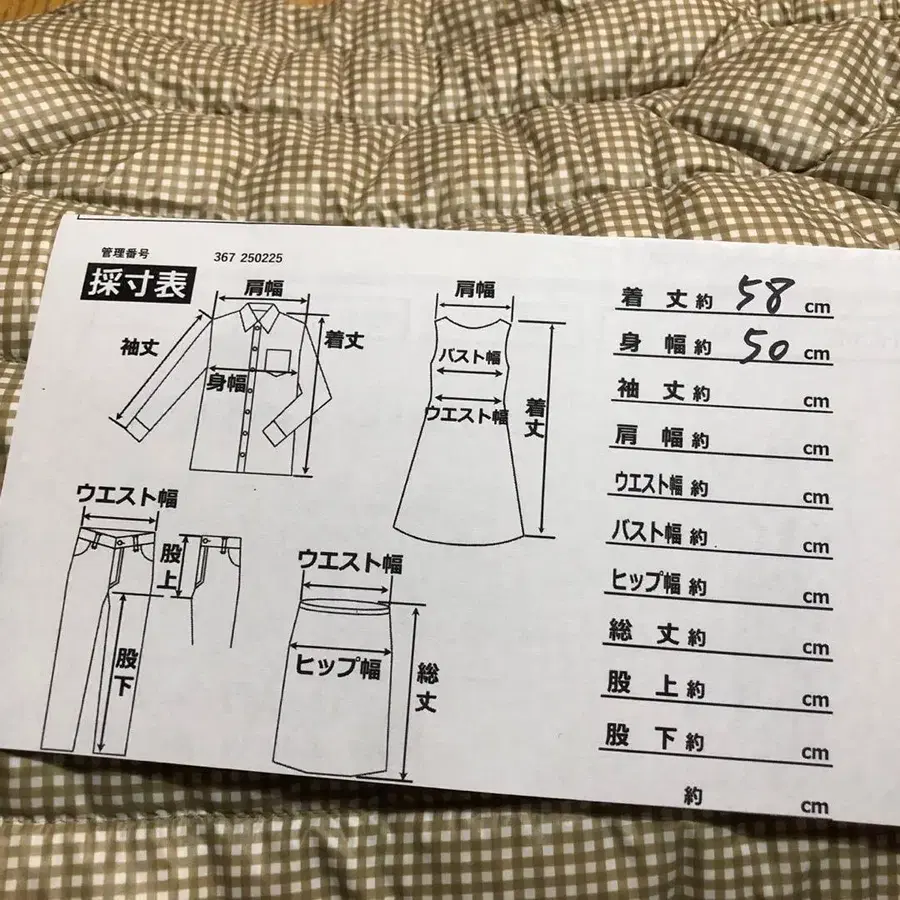 管理番号 367 250225
採寸表
肩幅
袖丈
着丈
身幅
肩幅
バスト幅
ウエスト幅
着丈
ウエスト幅
股上
股下
ウエスト幅
ヒップ幅
総丈
着 丈 約 58 cm
身 幅 約 50 cm
袖 丈 約 cm
肩 幅 約 cm
ウエスト幅 約 cm
バスト幅 約 cm
ヒップ幅 約 cm
総 丈 約 cm
股 上 約 cm
股 下 約 cm
約 cm